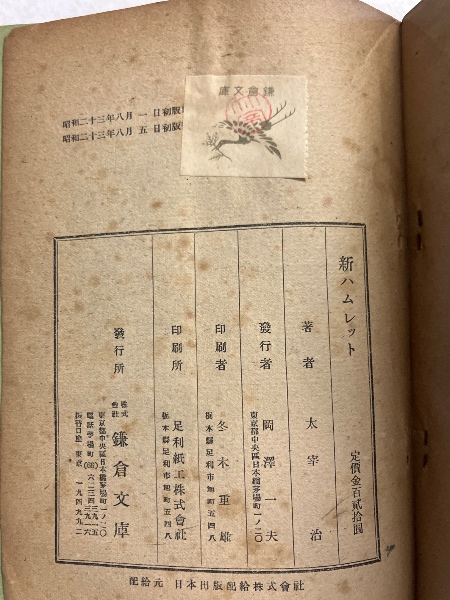 昭和二十三年八月一日初版
昭和二十三年八月五日初版
鎌倉文庫
新ハムレット
定價金百貳拾圓
著者 太宰治
發行者 岡澤一夫
東京都中央區日本橋茅場町一ノ二〇
印刷者 冬木重雄
栃木縣足利市旭町五四八
印刷所 足利紙工株式會社
栃木縣足利市旭町五四八
發行所 株式會社 鎌倉文庫
東京都中央區日本橋茅場町一ノ二〇
電話茅場町(66)
振替口座 東京 一九四九九二
配給元 日本出版配給株式會社